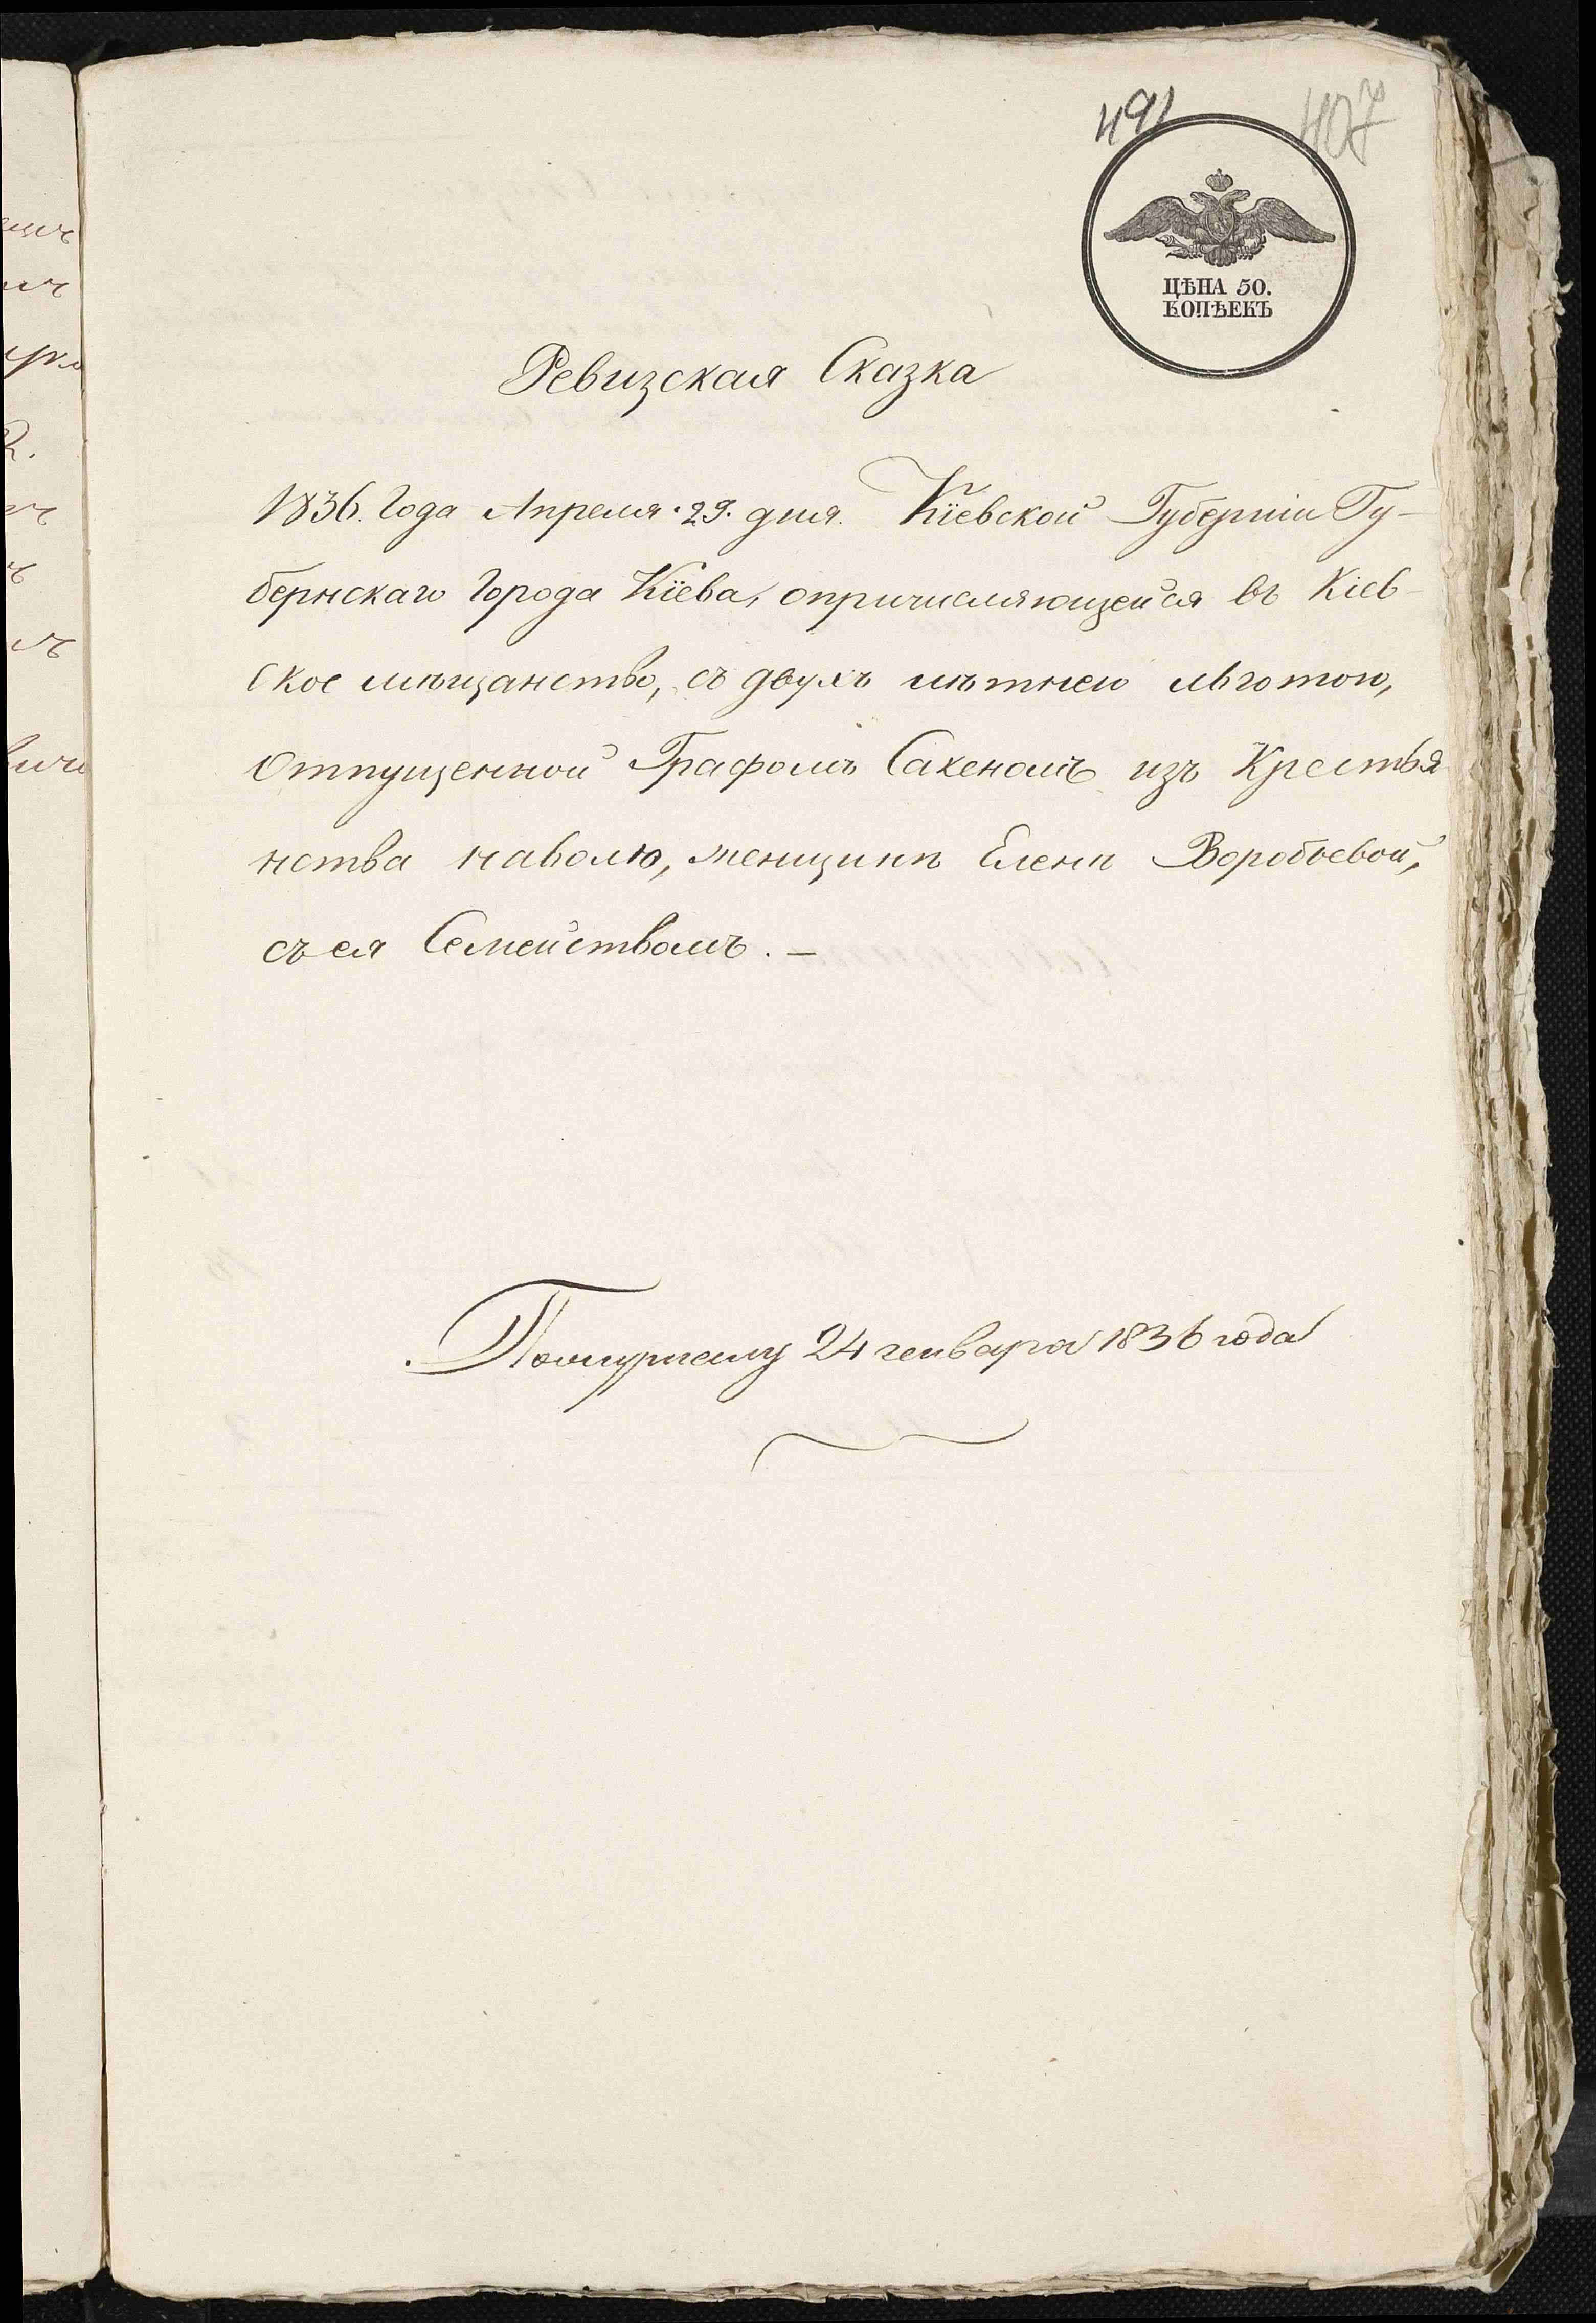 491 407
ЦѢНА 50.
КОПѢЕКЪ
Ревизская Сказка
1836. Года Апреля 29. дня. Кіевской Губерніи Гу-
бернскаго Города Кіева, опричисляющейся въ Кіев-
ское мѣщанство, съ двухъ лѣтнею льготою,
Отпущенной Графомъ Сакеномъ изъ Крестья
нства наволю, женщинѣ Еленѣ Воробьевой,
съ ея Семействомъ. —
24 генваря 1836 года